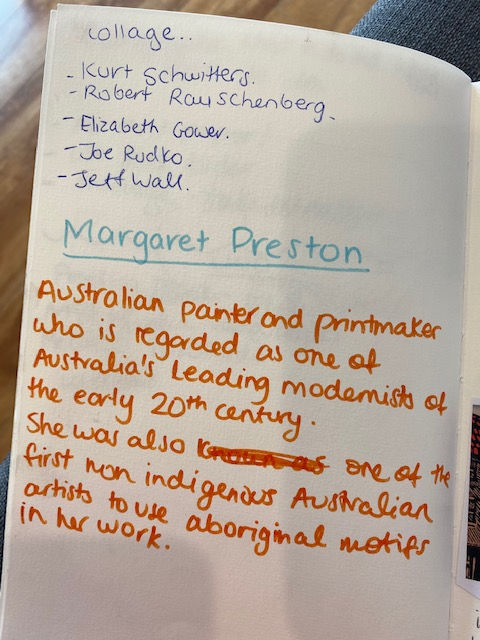 collage..
- Kurt Schwitters.
- Robert Rauschenberg.
- Elizabeth Gower.
- Joe Rudko.
- Jeff Wall.
Margaret Preston
Australian painter and printmaker
who is regarded as one of
Australia's Leading modernists of
the early 20th century.
She was also known as one of the
first non indigenous Australian
artists to use aboriginal motifs
in her work.